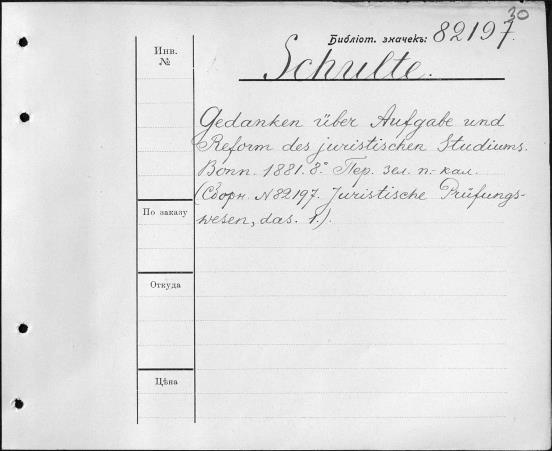 30
Библіот. значекъ: 82197.
Инв.
№
Schulte.
Gedanken über Aufgabe und
Reform des juristischen Studiums.
Bonn. 1881. 8° Пер. зел. п.-кал.
(Сборн. №82197. Juristische Prüfungs-
wesen, das. 1.).
По заказу
Откуда
Цѣна